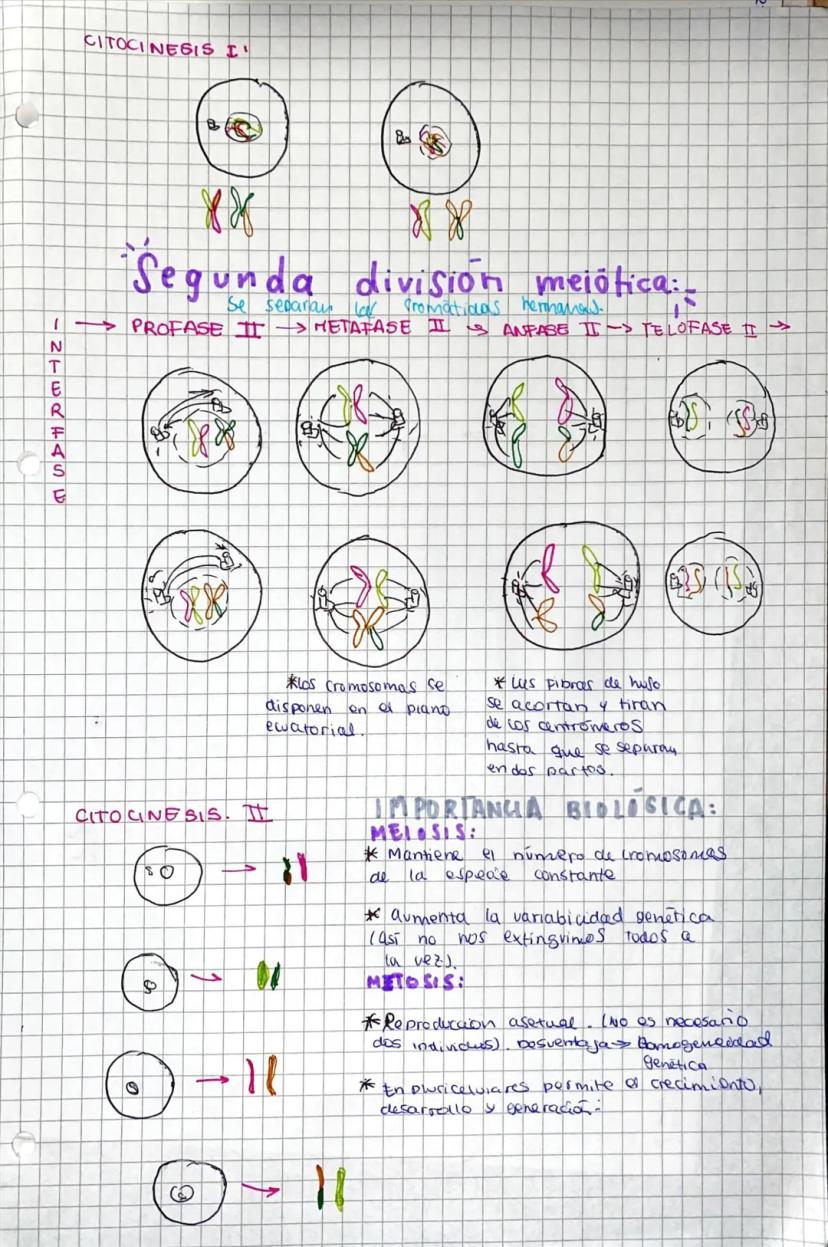 CITOCINESIS I:
Segunda división meiótica:
Se separan las cromátidas hermanas.
INTERFASE → PROFASE II → METAFASE II → ANFASE II → TELOFASE II →
*Los cromosomas se
disponen en el plano
ecuatorial.
* Las fibras de huso
se acortan y tiran
de los centrómeros
hasta que se separan
en dos partos.
CITOCINESIS. II
IMPORTANCIA BIOLÓGICA:
MEIOSIS:
* Mantiene el número de cromosomas
de la especie constante
* Aumenta la variabilidad genética
(así no nos extinguimos todos a
la vez).
METOSIS:
*Reproduccion asexual. (No es necesario
dos individuos). Desventaja → Homogeneidad
genética
* En pluricelulares permite el crecimiento,
desarrollo y generación.